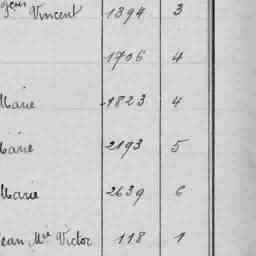 Vincent 1394 3
1706 4
Marie 1823 4
Marie 2193 5
Marie 2639 6
Jean Mie Victor 118 1